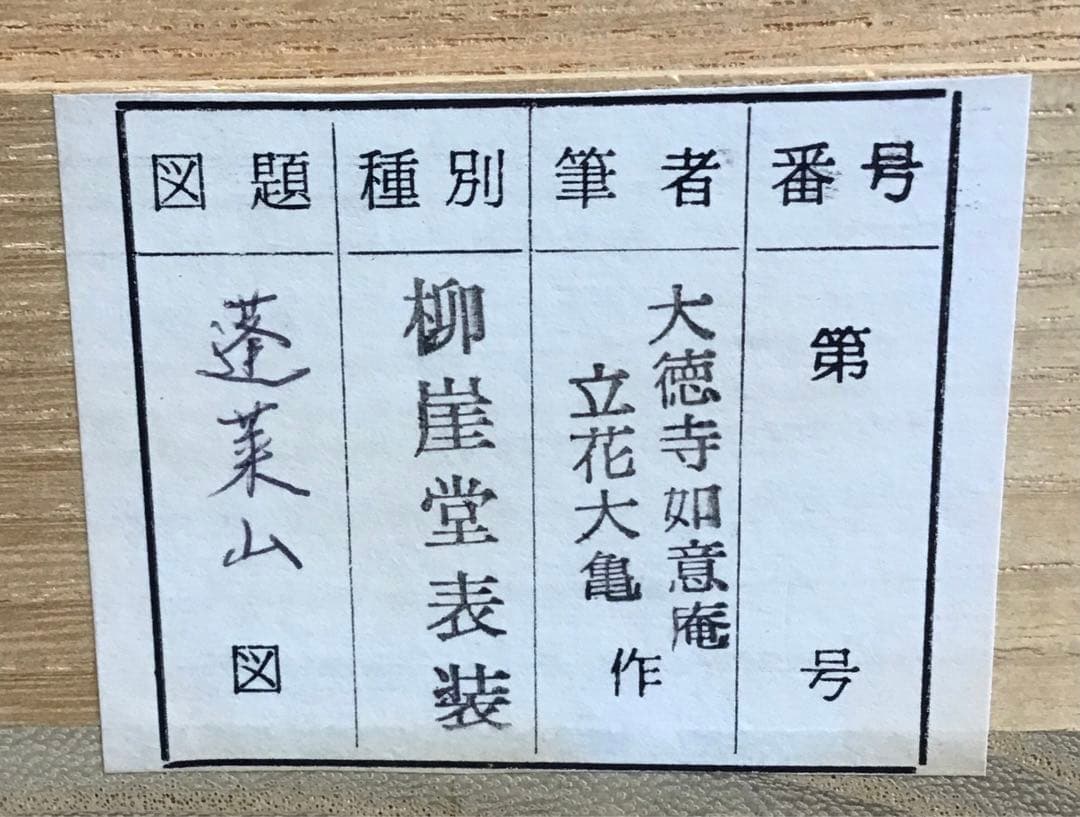 番号
第
号
筆者
大徳寺如意庵
立花大亀
作
種別
柳崖堂表装
図題
蓬莱山
図